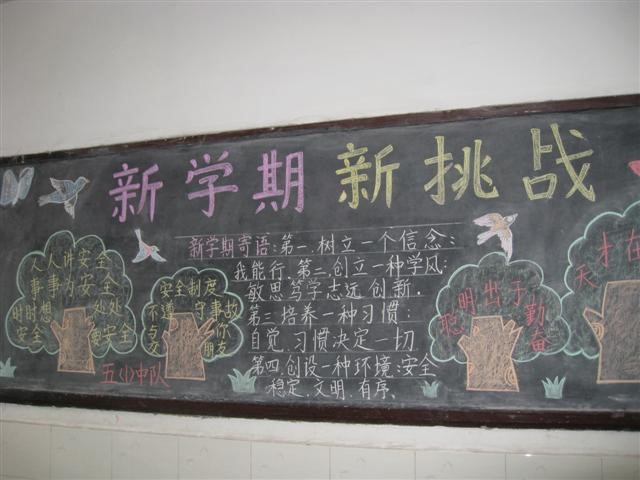 新学期 新挑战
新学期寄语:第一.树立一个信念:
我能行.第二.创立一种学风:
敏思笃学志远创新.
第三.培养一种习惯:
自觉.习惯决定一切
第四.创设一种环境:安全
稳定.文明.有序.
人人讲安全
事事为安全
时时想安全
处处要安全
安全制度
不遵守
事故
与你
交朋友
五(1)中队
聪明出于勤奋
天才在